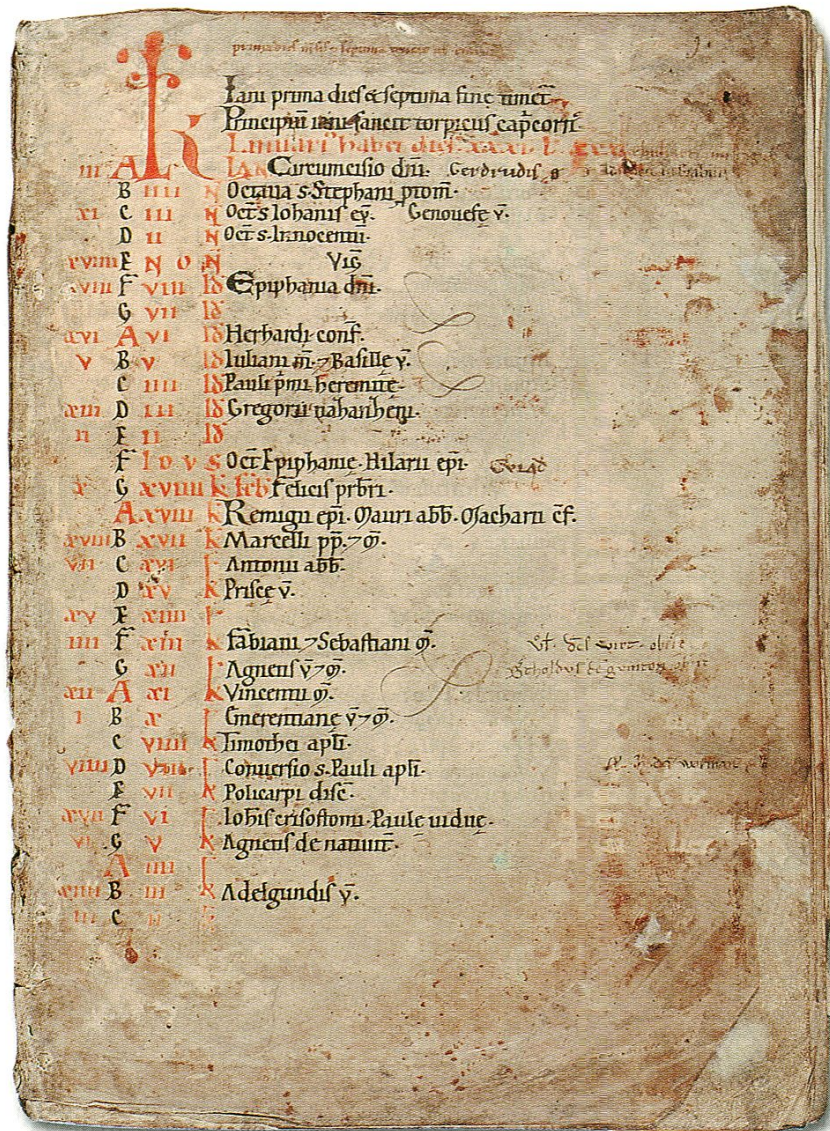 K
Iani prima dies & septima fine timet̄
Principiū iani sancit torpicus cap̄corn̄
Ianuarius habet dies xxxi L xxx
III A IAN Circumcisio dn̄i. Gerdrudis
B IIII N Octaua s. Stephani ptom̄.
XI C III N Oct̄ s. Iohanis ev̄. Genouefe v̄.
D II N Oct̄ s. Innocentū.
XVIIII E N O N Vig̅
VIII F VIII Id Epiphania dn̄i.
G VII Id
XVI A VI Id Herhardi conf̄.
V B V Id Iuliani m̄. ⁊ Basille v̄.
C IIII Id Pauli p̄mi heremite.
XIII D III Id Gregorii
II E II Id
F I D V S Oct̄ Epiphanie. Hilarii ep̄i.
X G XVIIII k feb̄ Felicis prb̄ri.
A XVIII k Remigii ep̄i. Mauri abb̄. Macharii c̄f.
XVIII B XVII k Marcelli pp̄. ⁊ m̄.
VII C XVI k Antonii abb̄.
D XV k Prisce v̄.
XV E XIIII k
IIII F XIII k Fabiani ⁊ Sebastiani m̄.
G XII k Agnetis v̄ ⁊ m̄.
XII A XI k Vincentii m̄.
I B X k Emerentiane v̄ ⁊ m̄.
C VIIII k Timothei apl̄i.
VIIII D VIII k Conuersio s. Pauli apl̄i.
E VII k Policarpi disc̄.
XVII F VI k Ioh̄is crisostomi. Paule uidue.
VI G V k Agnetis de natiuit̄.
A IIII k
XIIII B III k Adelgundis v̄.
III C II k